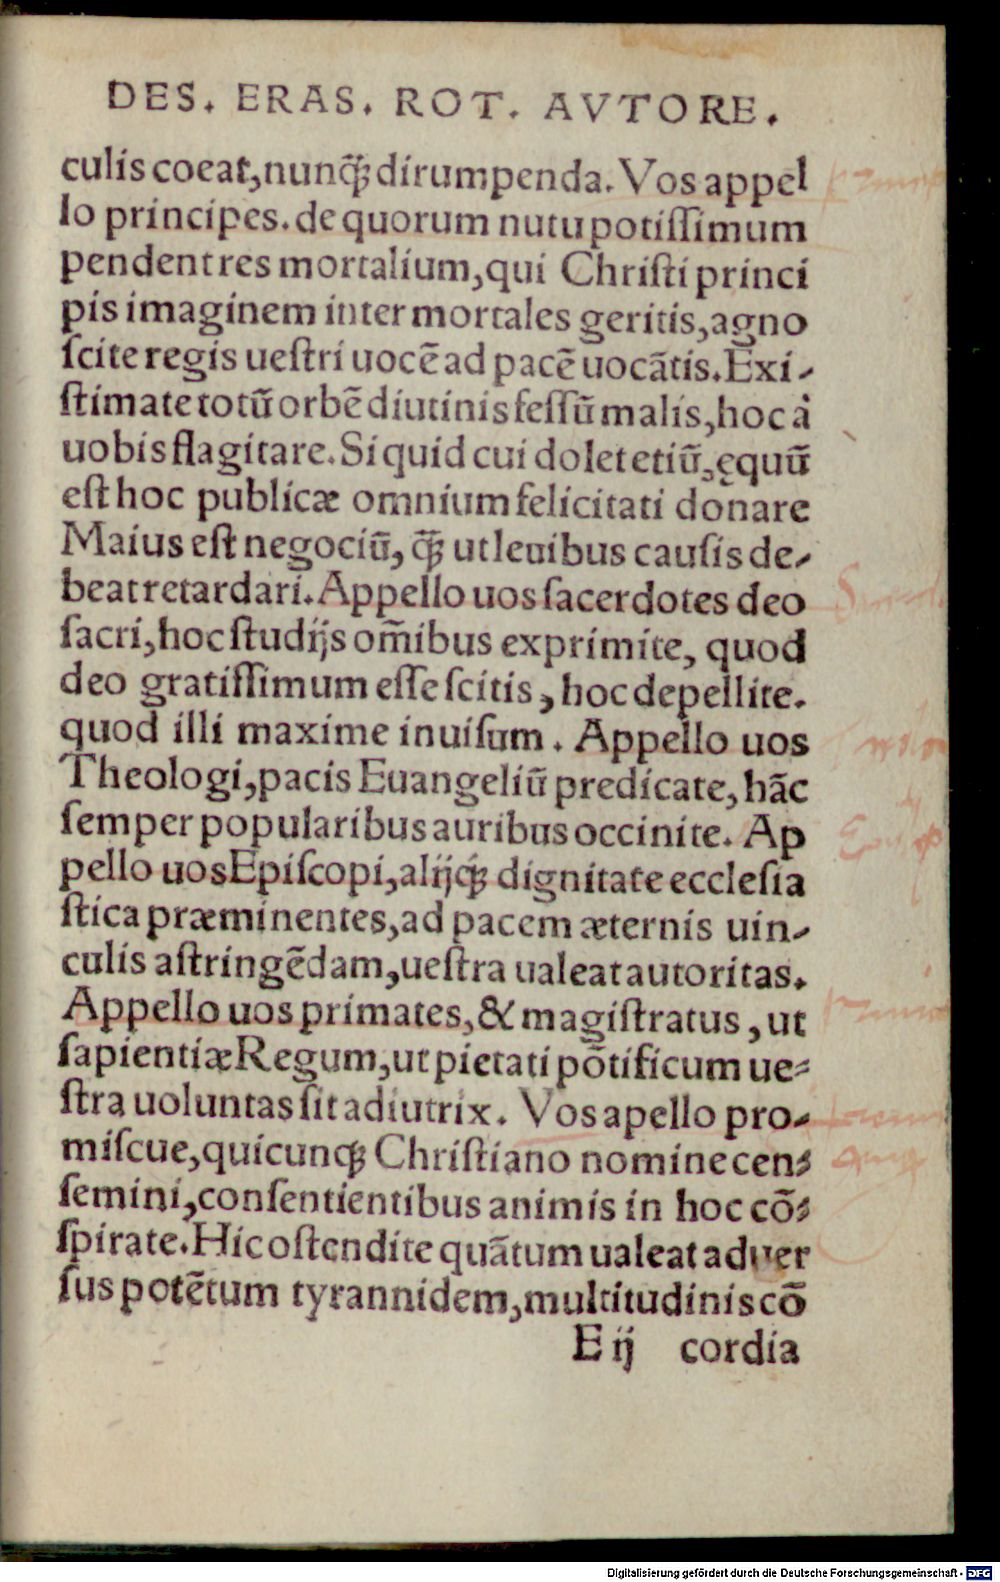 DES. ERAS. ROT. AVTORE.
culis coeat, nunq̃ꝫ dirumpenda. Vos appel
lo principes. de quorum nutu potiſſimum
pendent res mortalium, qui Chriſti princi
pis imaginem inter mortales geritis, agno
ſcite regis ueſtri uocẽ ad pacẽ uocãtis. Exi-
ſtimate totũ orbẽ diutinis feſſũ malis, hoc à
uobis flagitare. Si quid cui dolet etiũ, ęquũ
eſt hoc publicæ omnium felicitati donare
Maius eſt negociũ, q̃ꝫ ut leuibus cauſis de-
beat retardari. Appello uos ſacerdotes deo
ſacri, hoc ſtudijs om̃ibus exprimite, quod
deo gratiſſimum eſſe ſcitis, hoc depellite.
quod illi maxime inuiſum. Appello uos
Theologi, pacis Euangeliũ predicate, hãc
ſemper popularibus auribus occinite. Ap
pello uos Epiſcopi, alijq́ꝫ dignitate eccleſia
ſtica præminentes, ad pacem æternis uin-
culis aſtringẽdam, ueſtra ualeat autoritas.
Appello uos primates, & magiſtratus, ut
ſapientiæ Regum, ut pietati põtificum ue-
ſtra uoluntas ſit adiutrix. Vos apello pro-
miſcue, quicunqꝫ Chriſtiano nomine cen-
ſemini, conſentientibus animis in hoc cõ-
ſpirate. Hic oſtendite quãtum ualeat aduer
ſus potẽtum tyrannidem, multitudinis cõ
E ij cordia
Digitalisierung gefördert durch die Deutsche Forschungsgemeinschaft - DFG